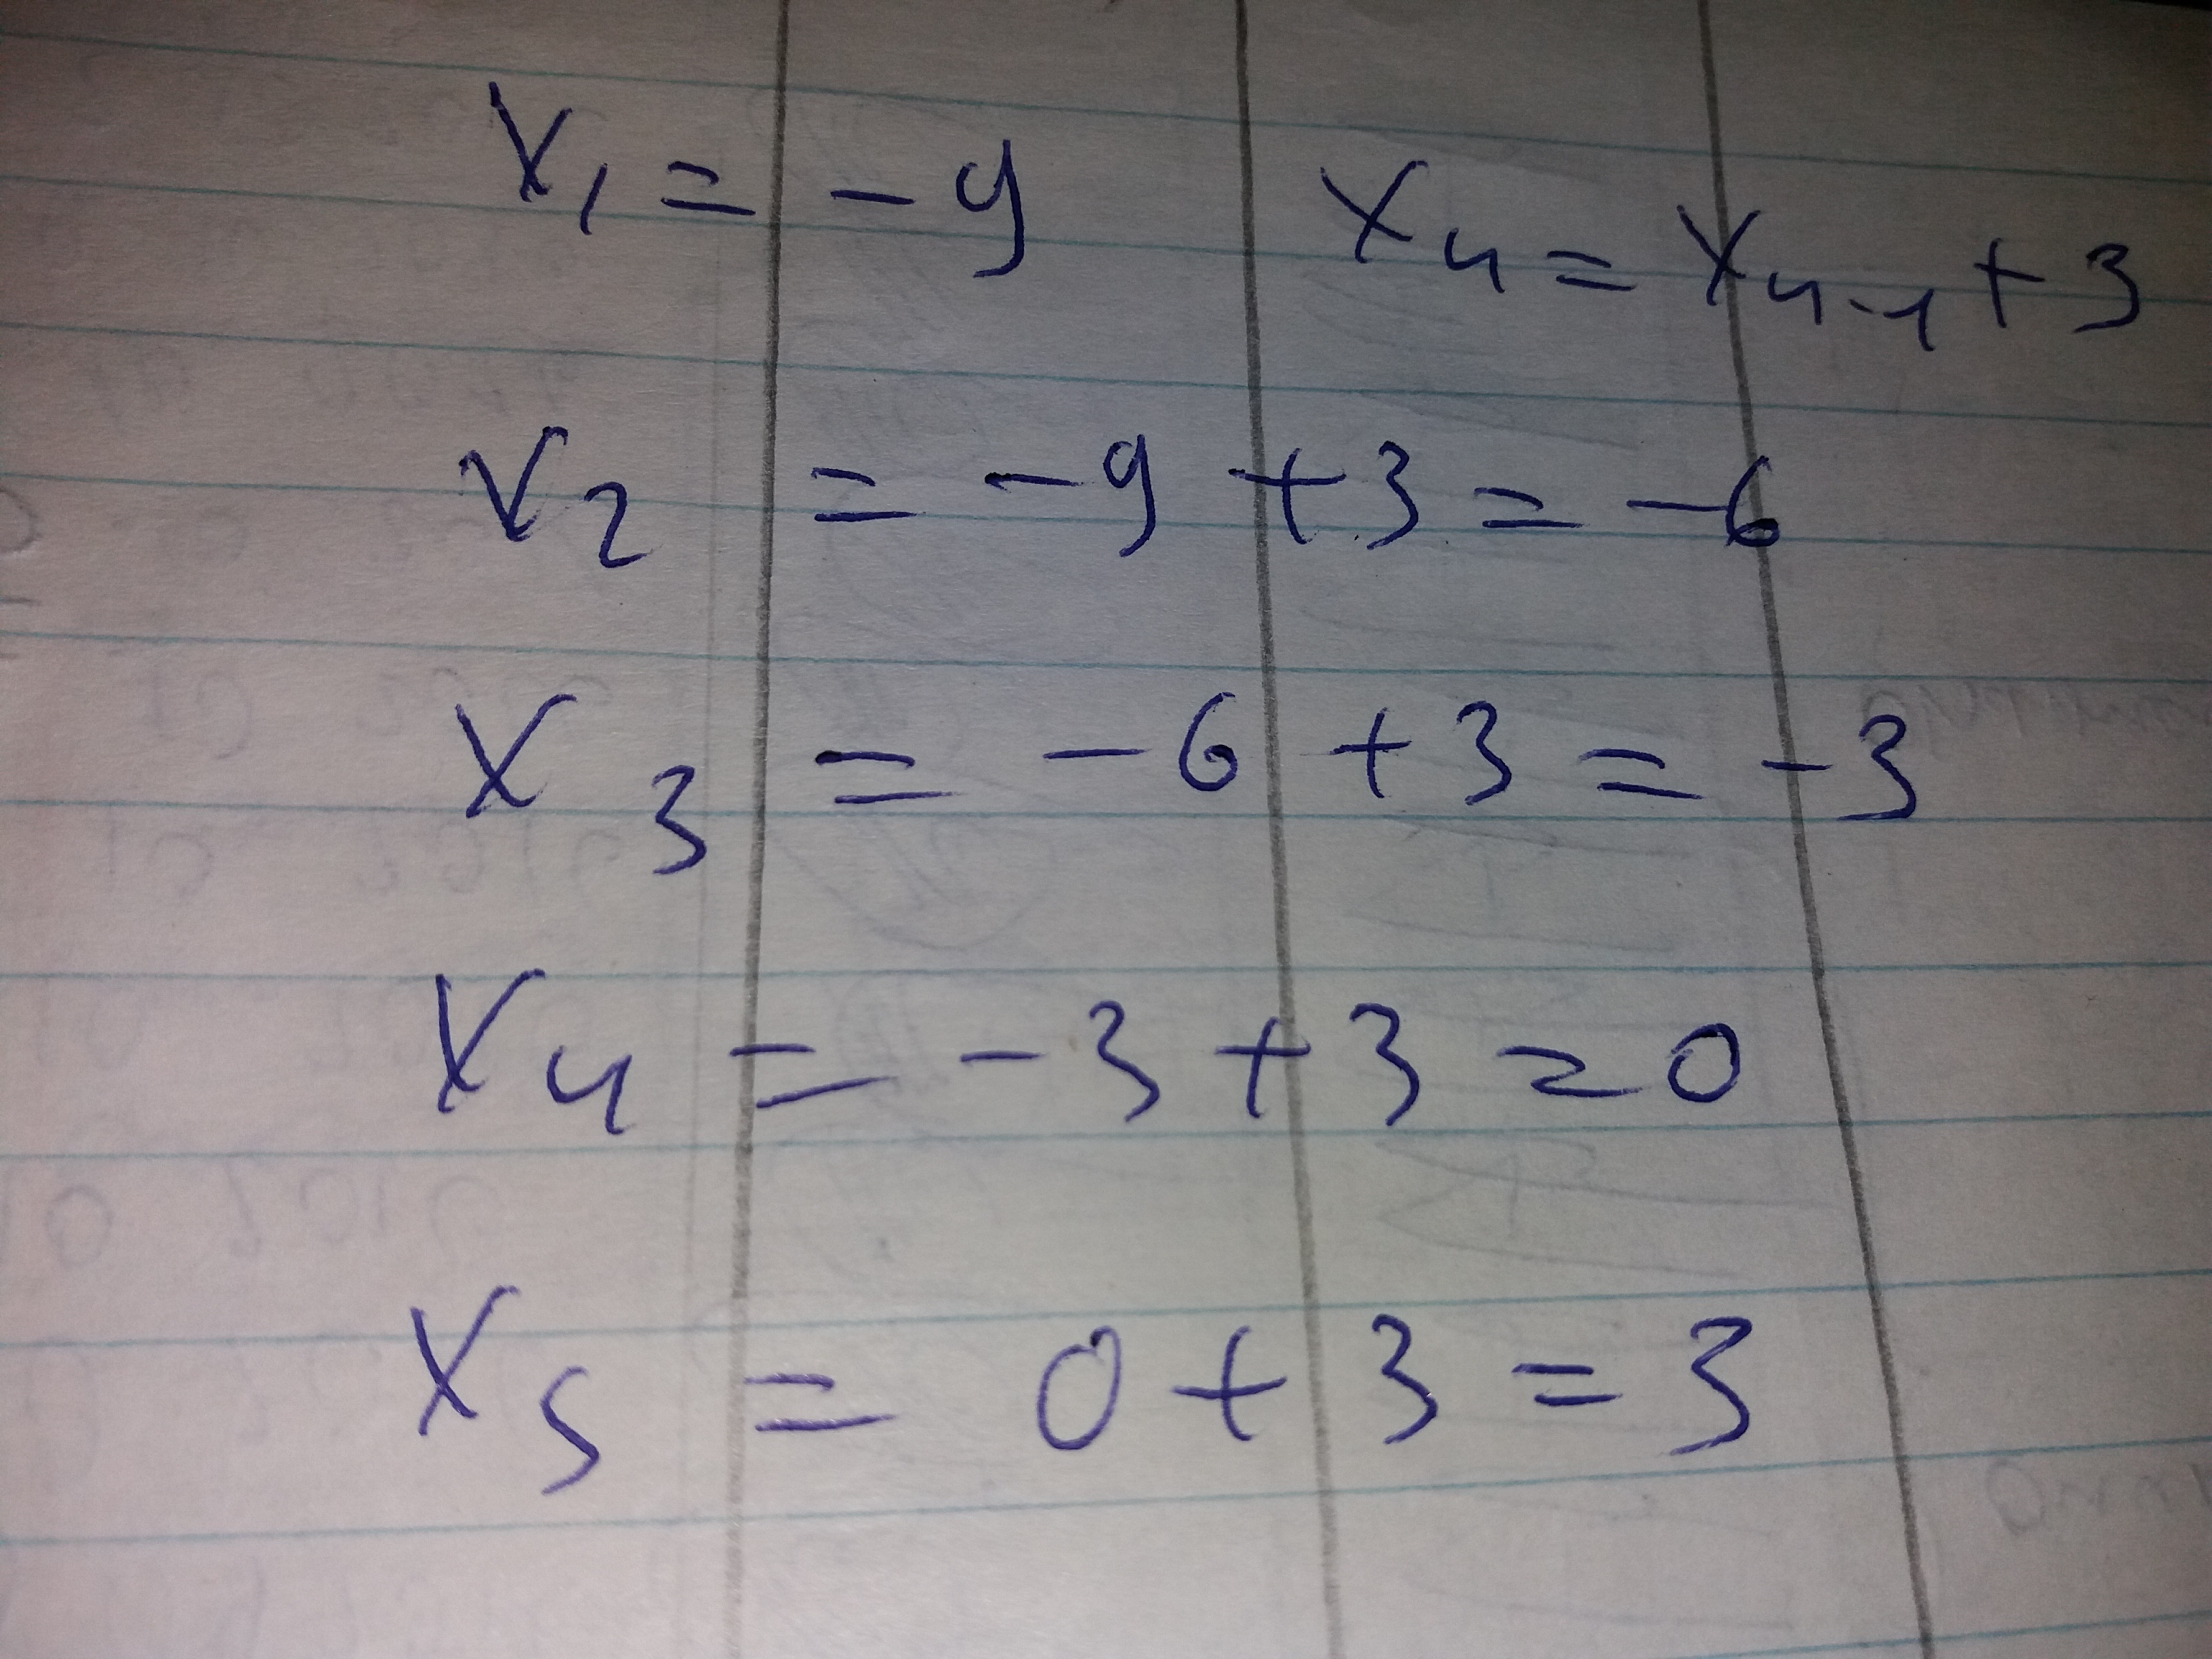 x₁ = -9 xₙ = xₙ₋₁ + 3
x₂ = -9 + 3 = -6
x₃ = -6 + 3 = -3
x₄ = -3 + 3 = 0
x₅ = 0 + 3 = 3